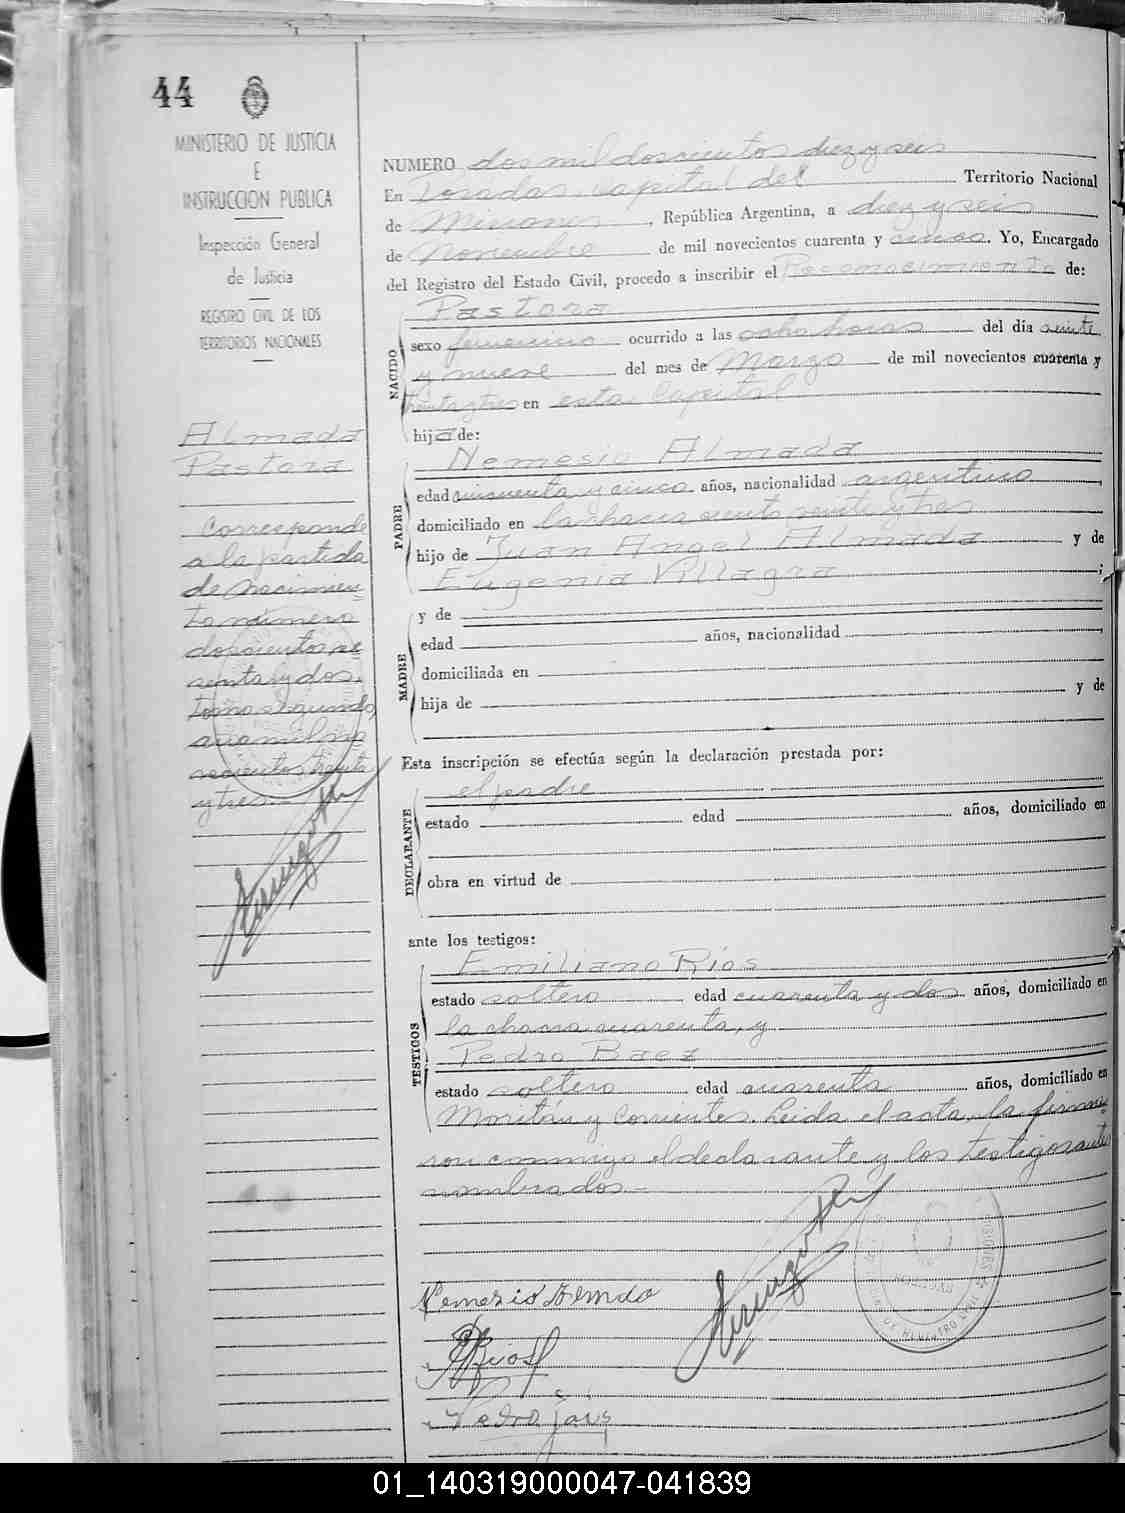 44
MINISTERIO DE JUSTICIA
E
INSTRUCCION PUBLICA
Inspección General
de Justicia
REGISTRO CIVIL DE LOS
TERRITORIOS NACIONALES
Almada
Pastora
Corresponde
a la partida
de nacimien
to número
doscientos se
senta y dos,
tomo segundo,
año mil no
vecientos treinta
y tres.-
NUMERO dos mil doscientos diez y seis
En Posadas, capital del Territorio Nacional
de Misiones, República Argentina, a diez y seis
de Noviembre de mil novecientos cuarenta y cinco. Yo, Encargado
del Registro del Estado Civil, procedo a inscribir el Reconocimiento de:
NACIDO
Pastora
sexo femenino ocurrido a las ocho horas del día veinte
y nueve del mes de Marzo de mil novecientos cuarenta y
treinta y tres en esta Capital
hija de:
PADRE
Nemesio Almada
edad cincuenta y cinco años, nacionalidad argentino,
domiciliado en la chacra ciento veinte y tres
hijo de Juan Angel Almada y de
Eugenia Villagra;
MADRE
y de
edad años, nacionalidad
domiciliada en
hija de y de
Esta inscripción se efectúa según la declaración prestada por:
DECLARANTE
el padre
estado edad años, domiciliado en
obra en virtud de
ante los testigos:
TESTIGOS
Emiliano Ríos
estado soltero edad cuarenta y dos años, domiciliado en
la chacra cuarenta, y
Pedro Baez
estado soltero edad cuarenta años, domiciliado en
Moritán y Corrientes. Leida el acta, la firma
ron conmigo el declarante y los testigos ante
nombrados.-
Pedro
01_140319000047-041839